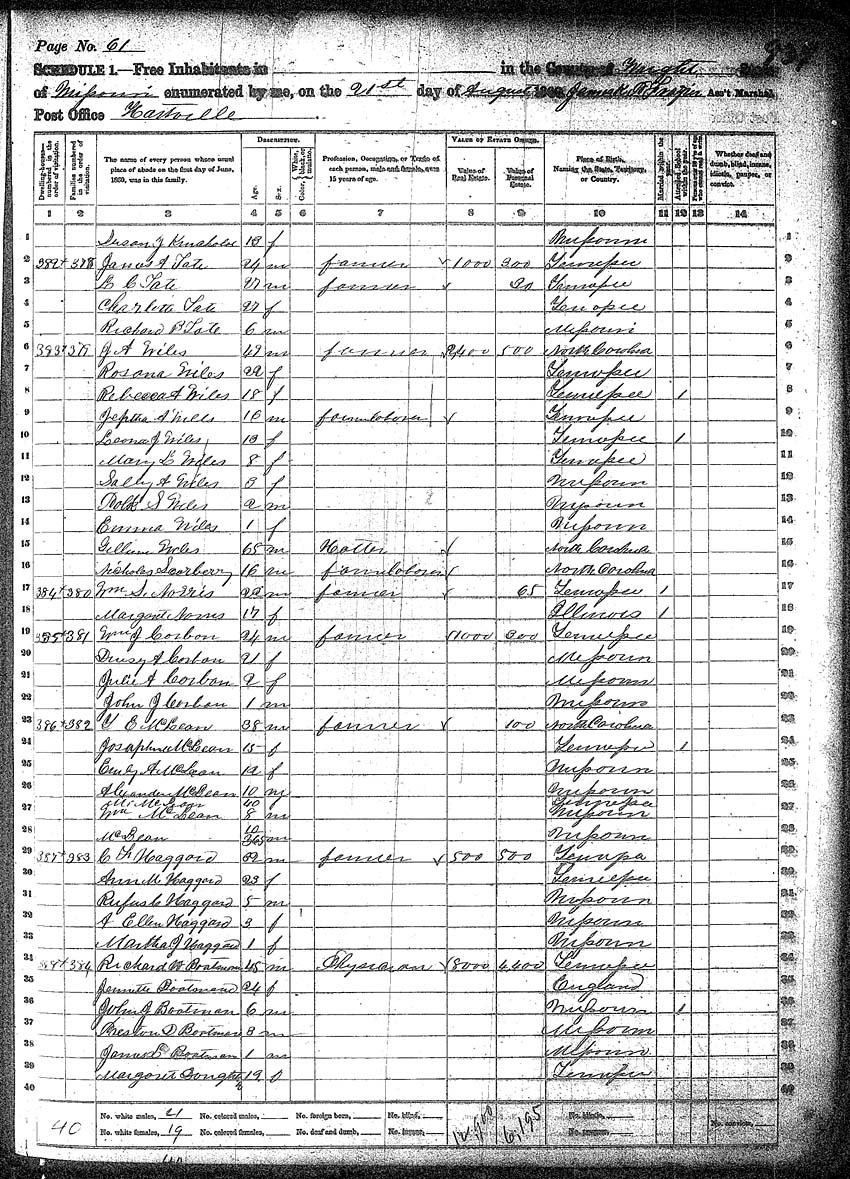 Page No. 61
SCHEDULE 1.—Free Inhabitants in in the County of Wright State
of Missouri enumerated by me, on the 21st day of August 1860. Ass't Marshal.
Post Office Hartville
DESCRIPTION. VALUE OF ESTATE OWNED.
Dwelling-houses—numbered in the order of visitation. Families numbered in the order of visitation. The name of every person whose usual place of abode on the first day of June, 1860, was in this family. Age. Sex. Color, White, black, or mulatto. Profession, Occupation, or Trade of each person, male and female, over 15 years of age. Value of Real Estate. Value of Personal Estate. Place of Birth, Naming the State, Territory, or Country. Married within the year. Attended School within the year. Whether deaf and dumb, blind, insane, idiotic, pauper, or convict.
1 2 3 4 5 6 7 8 9 10 11 12 13 14
1 Susan J 13 f Missouri 1
2 382 378 James A Tate 24 m farmer 1000 300 Tennessee 2
3 L C Tate 27 m farmer Tennessee 3
4 Charlotte Tate 27 f Tennessee 4
5 Richard P Tate 6 m Missouri 5
6 383 379 J A Wiles 47 m farmer 2400 500 North Carolina 6
7 Rosana Wiles f Tennessee 7
8 Rebecca A Wiles 18 f Tennessee 1 8
9 Jeptha A Wiles 16 m farm laborer Tennessee 9
10 Leona J Wiles 13 f Tennessee 1 10
11 Mary L Wiles 8 f Tennessee 11
12 Sally A Wiles 3 f Missouri 12
13 S Wiles 2 m Missouri 13
14 Emma Wiles 1 f Missouri 14
15 Wiles 65 m Hatter North Carolina 15
16 Nicholas Scarberry 16 m farm laborer North Carolina 16
17 384 380 Wm S. Norris 22 m farmer 65 Tennessee 1 17
18 Margaret Norris 17 f Illinois 1 18
19 385 381 Wm J Corban 24 m farmer 1000 300 Tennessee 19
20 A Corban 21 f Missouri 20
21 Julie A Corban 2 f Missouri 21
22 John J Corban 1 m Missouri 22
23 386 382 E McLean 38 m farmer 100 North Carolina 23
24 Josaphine McLean 15 f Tennessee 1 24
25 Emily A McLean 12 f Missouri 25
26 Alexander McLean 10 m Missouri 26
McLean 40 f Tennessee
27 Wm McLean 8 m Missouri 27
28 McLean 10/365 m Missouri 28
29 387 383 C Haggard 32 m farmer 500 500 Tennessee 29
30 Ann M Haggard 23 f Tennessee 30
31 Rufus C Haggard 5 m Missouri 31
32 A Ellen Haggard 3 f Missouri 32
33 Martha J Haggard 1 f Missouri 33
34 388 384 Richard W Boatman 45 m Physician 8000 4,400 Tennessee 34
35 Jennette Boatman 24 f England 35
36 John J Boatman 6 m Missouri 1 36
37 Preston D Boatman 3 m Missouri 37
38 James L Boatman 1 m Missouri 38
39 Margaret 19 f Tennessee 39
40 40
40 No. white males, 21 No. colored males, No. foreign born, No. blind, 6,195
No. white females, 19 No. colored females, No. deaf and dumb, No. insane, No. convicts,